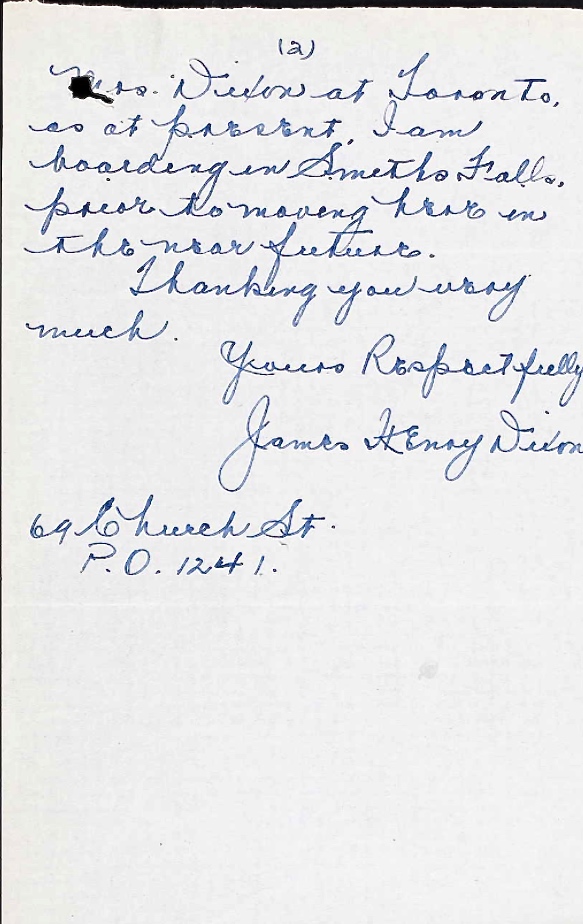 (2)
Mrs. Dixon at Toronto,
as at present, I am
boarding in Smiths Falls,
prior to moving here in
the near future.
Thanking you very
much.
Yours Respectfully
James Henry Dixon
69 Church St.
P.O. 1241.